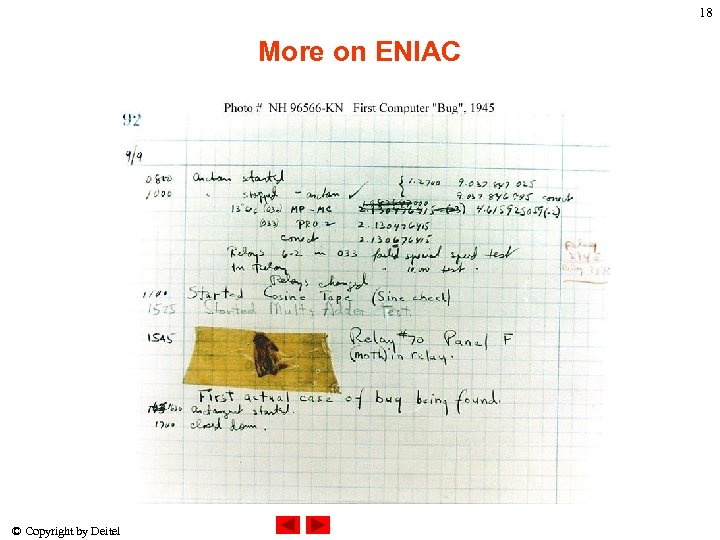 18
More on ENIAC
Photo # NH 96566-KN First Computer "Bug", 1945
92
9/9
0800 Antan started
1000 " stopped - antan ✓ { 1.2700 9.037 847 025
9.037 846 995 conect
13" MP - MC 2.130476415 4.615925059(-2)
(033) PRO 2 2. 130476415
conect 2.130676415
Relays 6-2 in 033 failed special speed test
in relay " 10.00 test .
Relay
2145
Relay 3370
Relays changed
1100 Started Cosine Tape (Sine check)
1525 Started Mult+Adder Test.
1545 Relay #70 Panel F
(moth) in relay.
First actual case of bug being found.
1630 antangent started.
1700 closed down.
© Copyright by Deitel